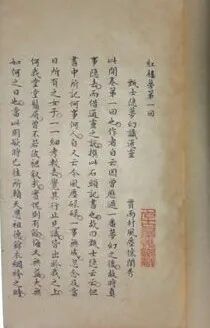 紅樓夢第一回
甄士隱夢幻識通靈
賈雨村風塵懷閨秀
此開卷第一回也作者自云因曾歷過一番夢幻之後故將真
事隱去而借通靈之說撰此石頭記一書也故曰甄士隱云云但
書中所記何事何人自又云今風塵碌碌一事無成忽念及當
日所有之女子一一細考較去覺其行止見識皆出於我之上
何我堂堂鬚眉誠不若彼裙釵我實愧則有餘悔又無益大無
如何之日也當此則欲將已往所賴天恩祖德錦衣紈袴之時